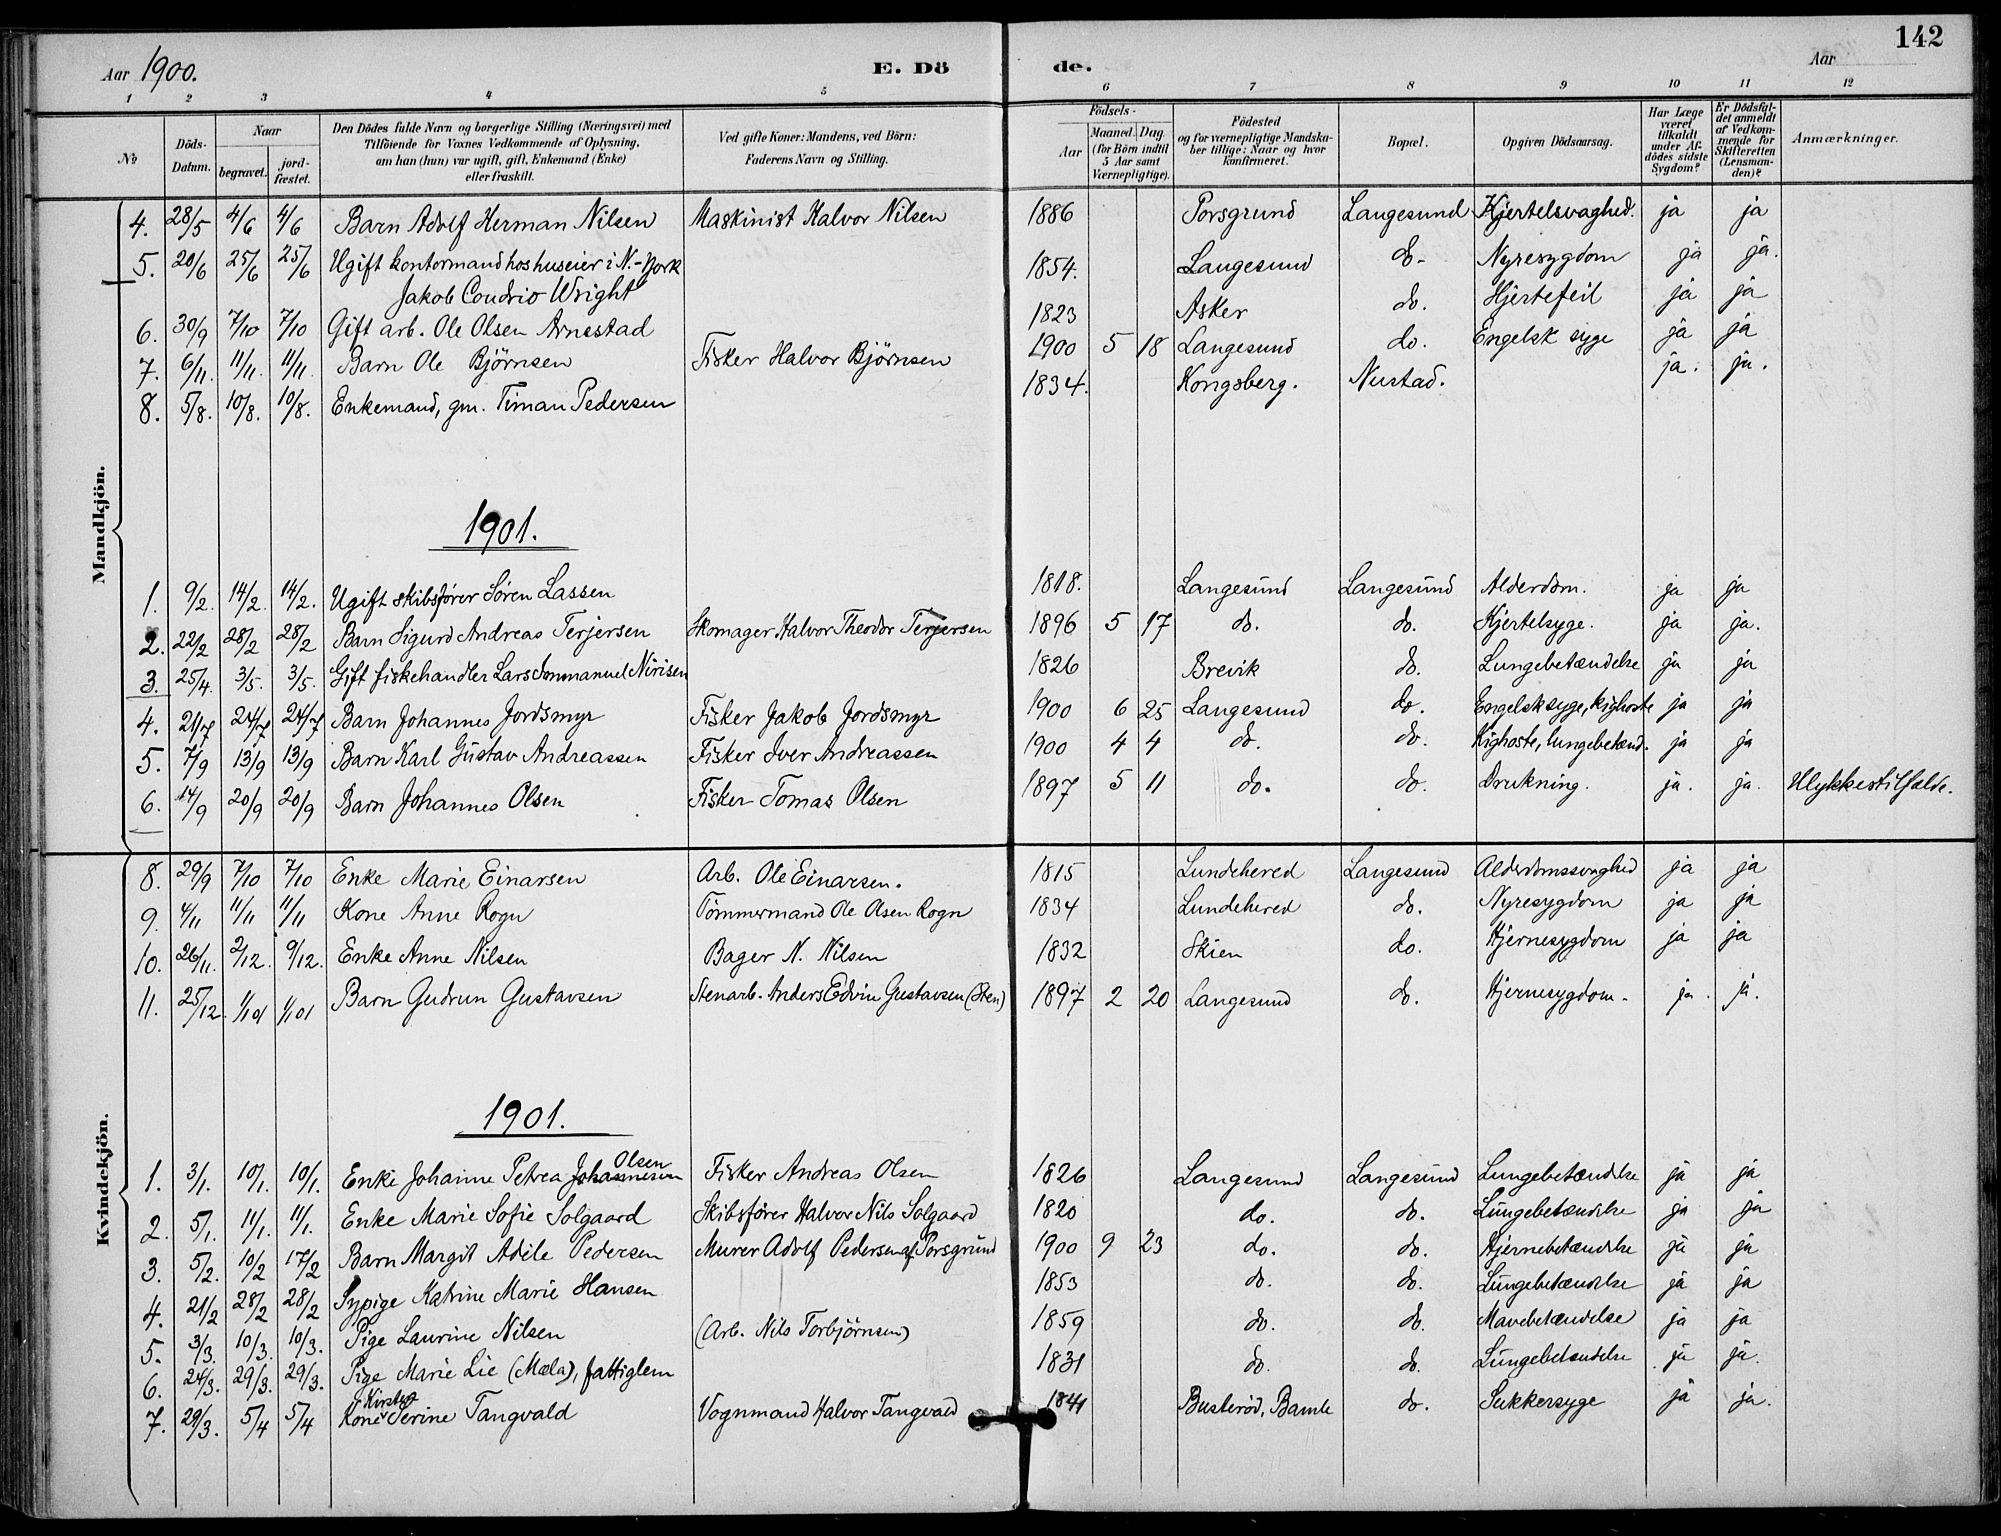 142
Aar 1900. E. Dö de. Aar
1 2 3 4 5 6 7 8 9 10 11 12
No Döds-Datum. Naar begravet. jord-fæstet. Den Dödes fulde Navn og borgerlige Stilling (Næringsvei) med Tilföiende for Voxnes Vedkommende af Oplysning, om han (hun) var ugift, gift, Enkemand (Enke) eller fraskilt. Ved gifte Koner: Mandens, ved Börn: Faderens Navn og Stilling. Födsels- Aar Maaned. Dag. (for Börn indtil 5 Aar samt Værnepligtige). Födested og for værnepligtige Mandskaber tillige: Naar og hvor konfirmeret. Bopæl. Opgiven Dödsaarsag. Har Læge været tilkaldt under Afdödes sidste Sygdom? Er Dödsfaldet anmeldt af Vedkommende for Skifteretten (Lensmanden)? Anmærkninger.
Mandkjön.
4. 28/5 4/6 4/6 Barn Adolf Herman Nilsen Maskinist Halvor Nilsen 1886 Porsgrund Langesund Kjertelsvaghed. ja ja
5. 20/6 25/6 25/6 Ugift kontormand hos huseier i N.-York 1854. Langesund do- Nyresygdom ja ja.
Jakob Coudrio Wright
6. 30/9 7/10 7/10 Gift arb. Ole Olsen Arnestad 1823 Asker do. Hjertefeil ja ja
7. 6/11. 11/11. 11/11. Barn Ole Björnsen Fisker Halvor Björnsen 1900 5 18 Langesund do. Engelsk syge ja ja
8. 5/8. 10/8. 10/8. Enkemand, gm. Timan Pedersen 1834. Kongsberg. Nustad. ja. ja.
1901.
1. 9/2. 14/2. 14/2. Ugift skibsförer Sören Lassen 1818. Langesund Langesund Alderdom. ja ja
2. 22/2 28/2 28/2 Barn Sigurd Andreas Terjersen Skomager Halvor Theodor Terjersen 1896 5 17 do. do. Kjertelsyge. ja ja.
3. 25/4. 3/5. 3/5. Gift fiskehandler Lars Immanuel Nirisen 1826 Brevik do. Lungebetændelse ja ja
4. 21/7 24/7 24/7 Barn Johannes Jordsmyr Fisker Jakob Jordsmyr 1900 6 25 Langesund do. Engelsk syge, kighoste ja ja
5. 7/9 13/9 13/9 Barn Karl Gustav Andreassen Fisker Iver Andreassen 1900 4 4 do. do. Kighoste, lungebetænd. ja ja
6. 14/9 20/9 20/9 Barn Johannes Olsen Fisker Tomas Olsen 1897 5 11 do. do. Drukning. ja. ja. Ulykkestilfælde.
Kvindekjön.
8. 29/9 7/10 7/10 Enke Marie Einarsen Arb. Ole Einarsen. 1815 Lundehered Langesund Alderdomssvaghed ja ja
9. 4/11 11/11 11/11 Kone Anne Rogn Tömmermand Ole Olsen Rogn 1834 Lundehered do. Nyresygdom ja ja
10. 26/11. 2/12. 9/12. Enke Anne Nilsen Bager N. Nilsen 1832 Skien do. Hjernesygdom ja ja
11. 25/12. 1/1 01 1/1 01 Barn Gudrun Gustavsen Stenarb. Anders Edvin Gustavsen (Sten) 1897 2 20 Langesund do. Hjernesygdom. ja. ja.
1901.
1. 3/1. 10/1. 10/1. Enke Johanne Petrea Johannesen Olsen Fisker Andreas Olsen 1826 Langesund Langesund Lungebetændelse ja ja
2. 5/1. 11/1. 11/1. Enke Marie Sofie Solgaard Skibsförer Halvor Nils Solgaard 1820 do. do. Lungebetændelse ja ja
3. 5/2. 10/2 17/2 Barn Margit Adele Pedersen Murer Adolf Pedersen af Porsgrund 1900 9 23 do. do. Hjernebetændelse ja ja
4. 21/2 28/2 28/2 Sypige Katrine Marie Hansen 1853 do. do. Lungebetændelse ja ja
5. 3/3. 10/3. 10/3. Pige Laurine Nilsen (Arb. Nils Torbjörnsen) 1859 do. do. Mavebetændelse ja ja
6. 24/3. 29/3. 29/3. Pige Marie Lie (Mæla), fattiglem 1831 do. do. Lungebetændelse ja ja.
7. 29/3. 5/4 5/4 Kone Kirsten Serine Tangvald Vognmand Halvor Tangvald 1841 Busteröd, Bamle do. Sukkersyge ja ja.